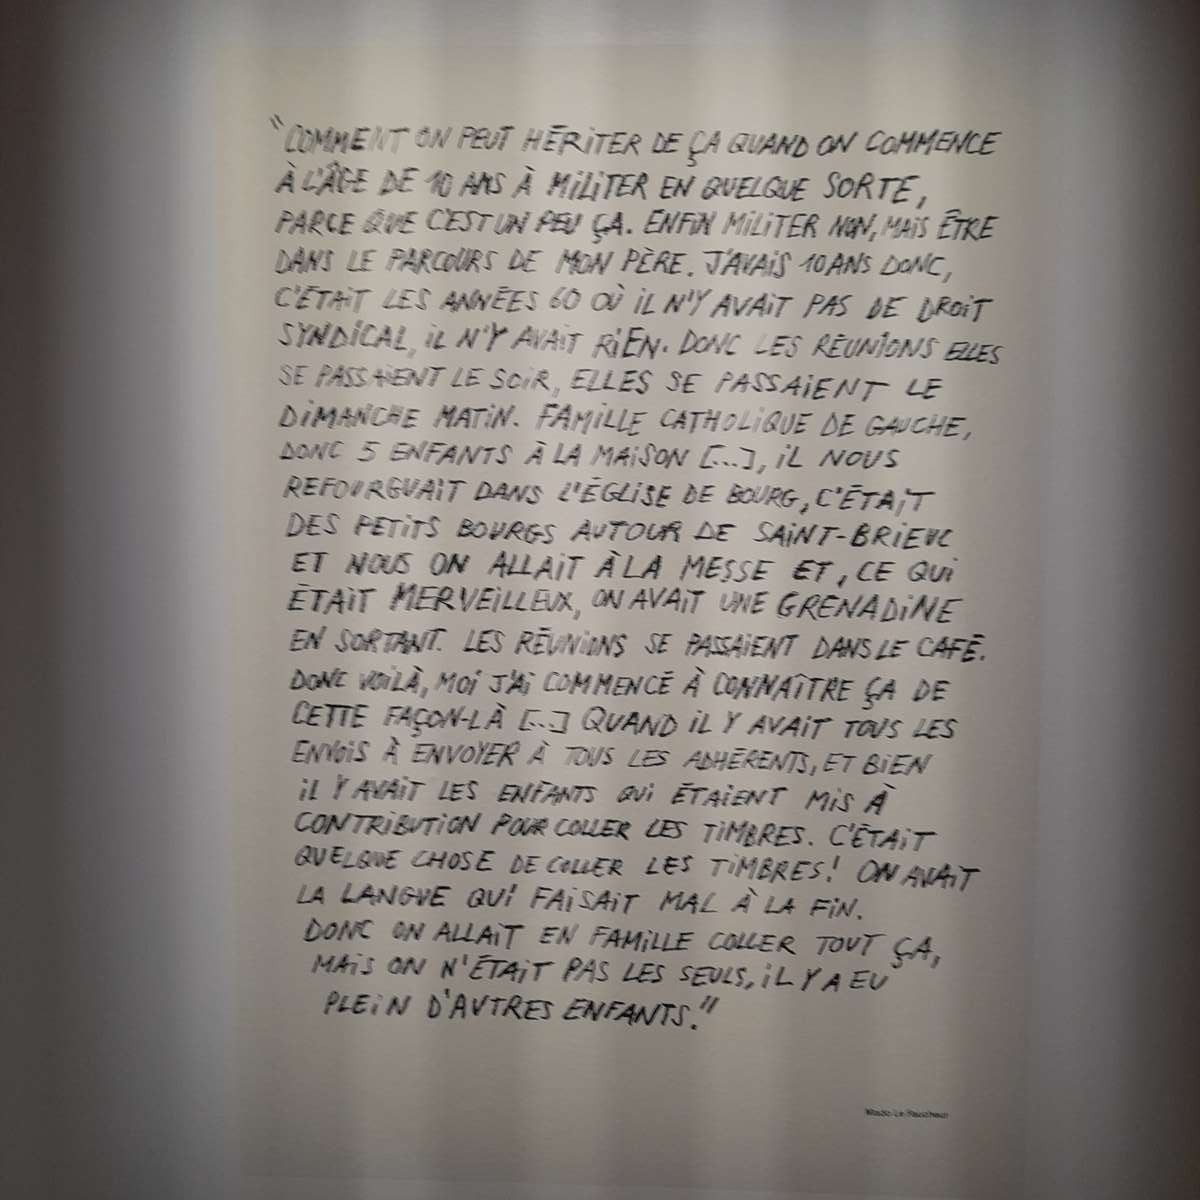 "COMMENT ON PEUT HÉRITER DE ÇA QUAND ON COMMENCE
À L'ÂGE DE 10 ANS À MILITER EN QUELQUE SORTE,
PARCE QUE C'EST UN PEU ÇA. ENFIN MILITER NON, MAIS ÊTRE
DANS LE PARCOURS DE MON PÈRE. J'AVAIS 10 ANS DONC,
C'ÉTAIT LES ANNÉES 60 OÙ IL N'Y AVAIT PAS DE DROIT
SYNDICAL, IL N'Y AVAIT RIEN. DONC LES RÉUNIONS ELLES
SE PASSAIENT LE SOIR, ELLES SE PASSAIENT LE
DIMANCHE MATIN. FAMILLE CATHOLIQUE DE GAUCHE,
DONC 5 ENFANTS À LA MAISON [...], IL NOUS
REFOURGUAIT DANS L'ÉGLISE DE BOURG, C'ÉTAIT
DES PETITS BOURGS AUTOUR DE SAINT-BRIEUC
ET NOUS ON ALLAIT À LA MESSE ET, CE QUI
ÉTAIT MERVEILLEUX, ON AVAIT UNE GRENADINE
EN SORTANT. LES RÉUNIONS SE PASSAIENT DANS LE CAFÉ.
DONC VOILÀ, MOI J'AI COMMENCÉ À CONNAÎTRE ÇA DE
CETTE FAÇON-LÀ [...] QUAND IL Y AVAIT TOUS LES
ENVOIS À ENVOYER À TOUS LES ADHÉRENTS, ET BIEN
IL Y AVAIT LES ENFANTS QUI ÉTAIENT MIS À
CONTRIBUTION POUR COLLER LES TIMBRES. C'ÉTAIT
QUELQUE CHOSE DE COLLER LES TIMBRES! ON AVAIT
LA LANGUE QUI FAISAIT MAL À LA FIN.
DONC ON ALLAIT EN FAMILLE COLLER TOUT ÇA,
MAIS ON N'ÉTAIT PAS LES SEULS, IL Y A EU
PLEIN D'AUTRES ENFANTS."
Mado Le Faucheur